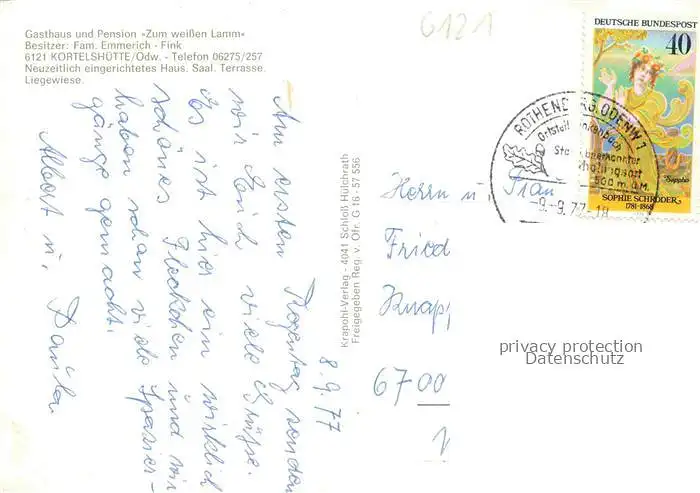 Gasthaus und Pension »Zum weißen Lamm«
Besitzer: Fam. Emmerich - Fink
6121 KORTELSHÜTTE/Odw. - Telefon 06275/257
Neuzeitlich eingerichtetes Haus. Saal. Terrasse.
Liegewiese.
6121
8.9.77
Am ersten Regentag senden
wir Euch viele Grüße.
Es ist hier ein wirklich
schönes Fleckchen und wir
haben schon viele Spazier-
gänge gemacht.
Albert u.
Krapohl-Verlag - 4041 Schloß Hülchrath
Freigegeben Reg. v. Ofr. G 16 - 57 556
DEUTSCHE BUNDESPOST
40
Sappho
SOPHIE SCHRÖDER
1781-1868
ROTHENBERG, ODENW 1
Ortsteil
Staatl. anerkannter
Erholungsort
500 m ü.M.
-9.-9.77-18
Herrn u. Frau
Fried
Knapp
6700
privacy protection
Datenschutz